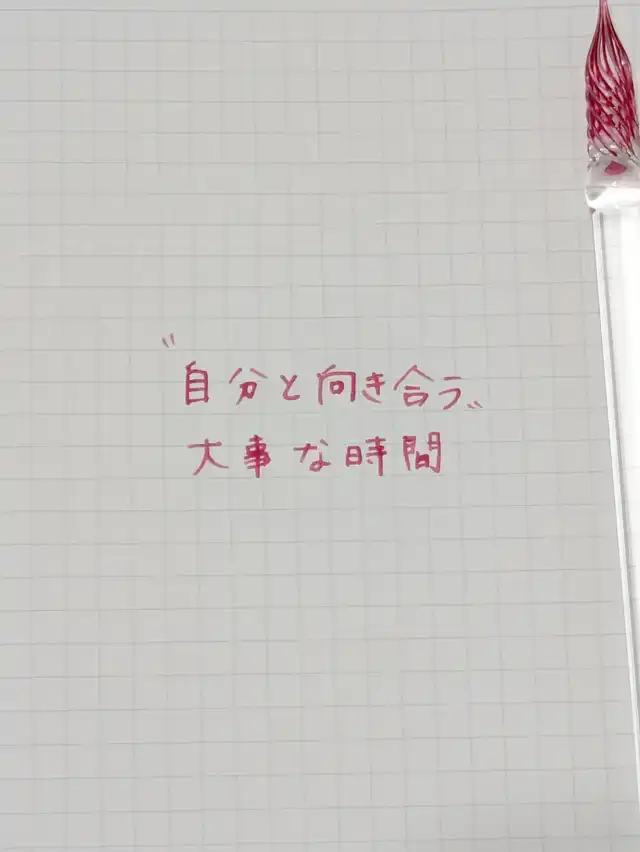 〝自分と向き合う〟
大事な時間